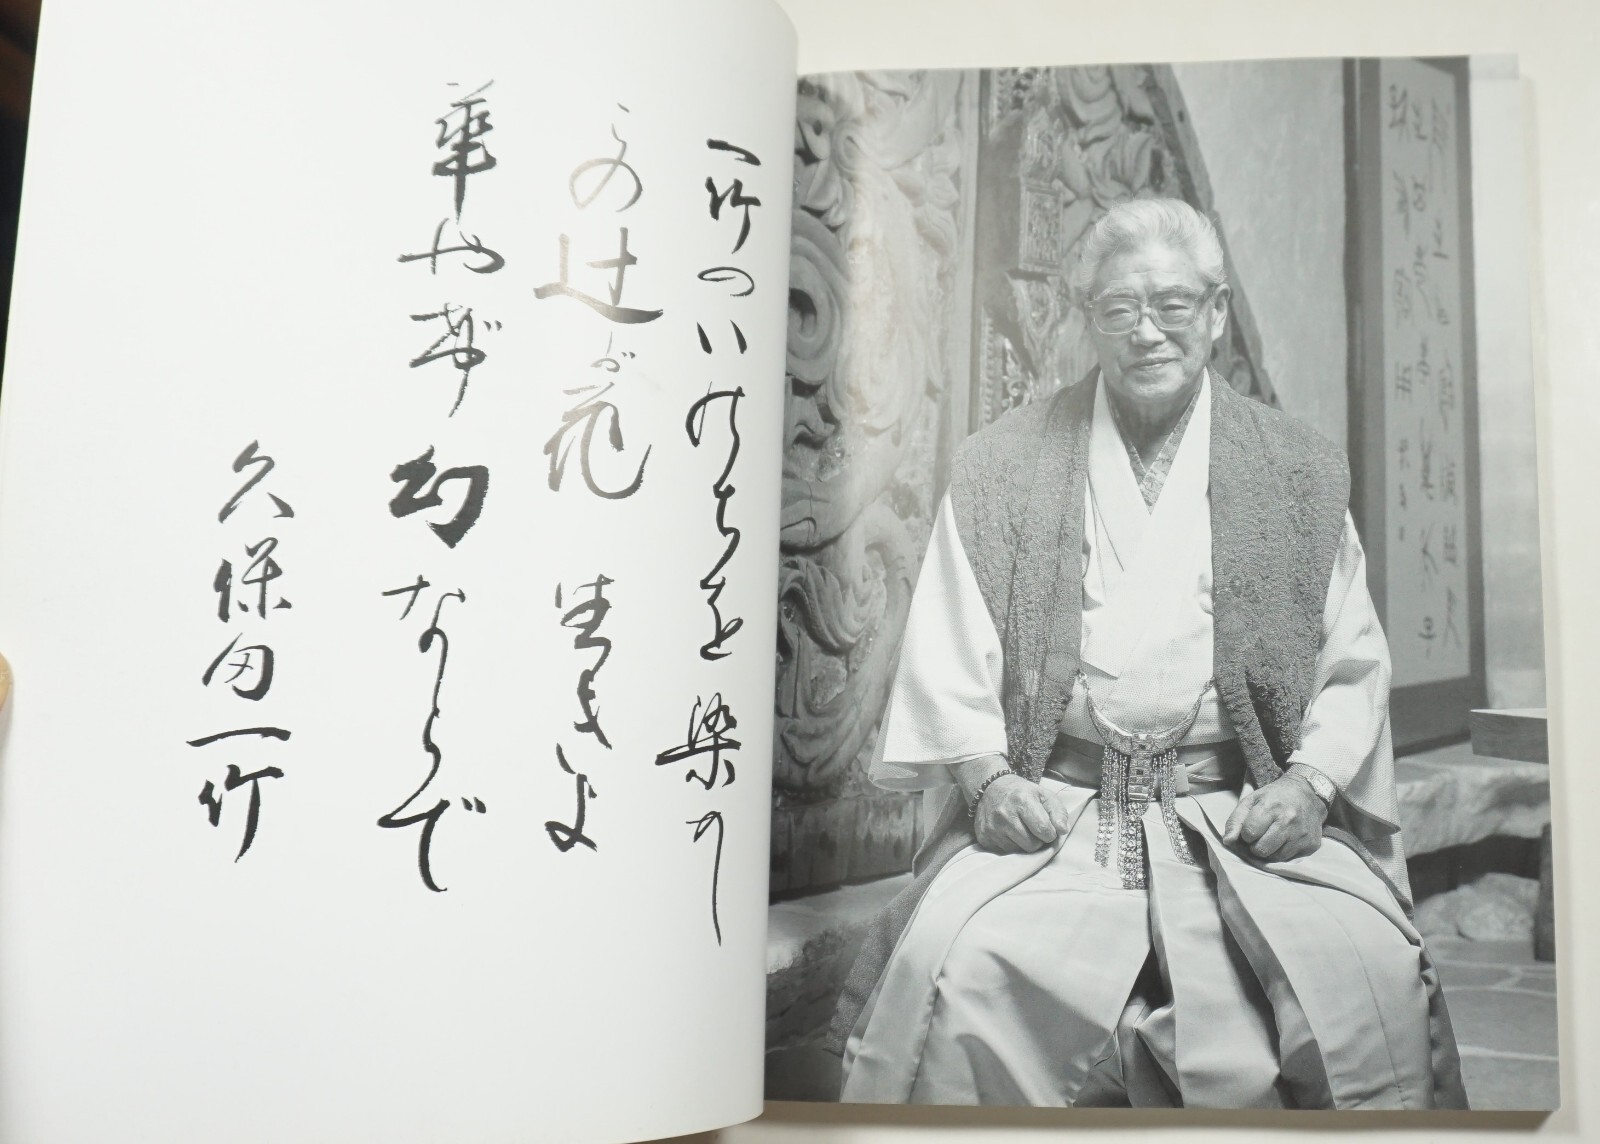 一竹のいのちを染めし
この辻が花 生きよ
華やぎ幻ならで
久保田一竹